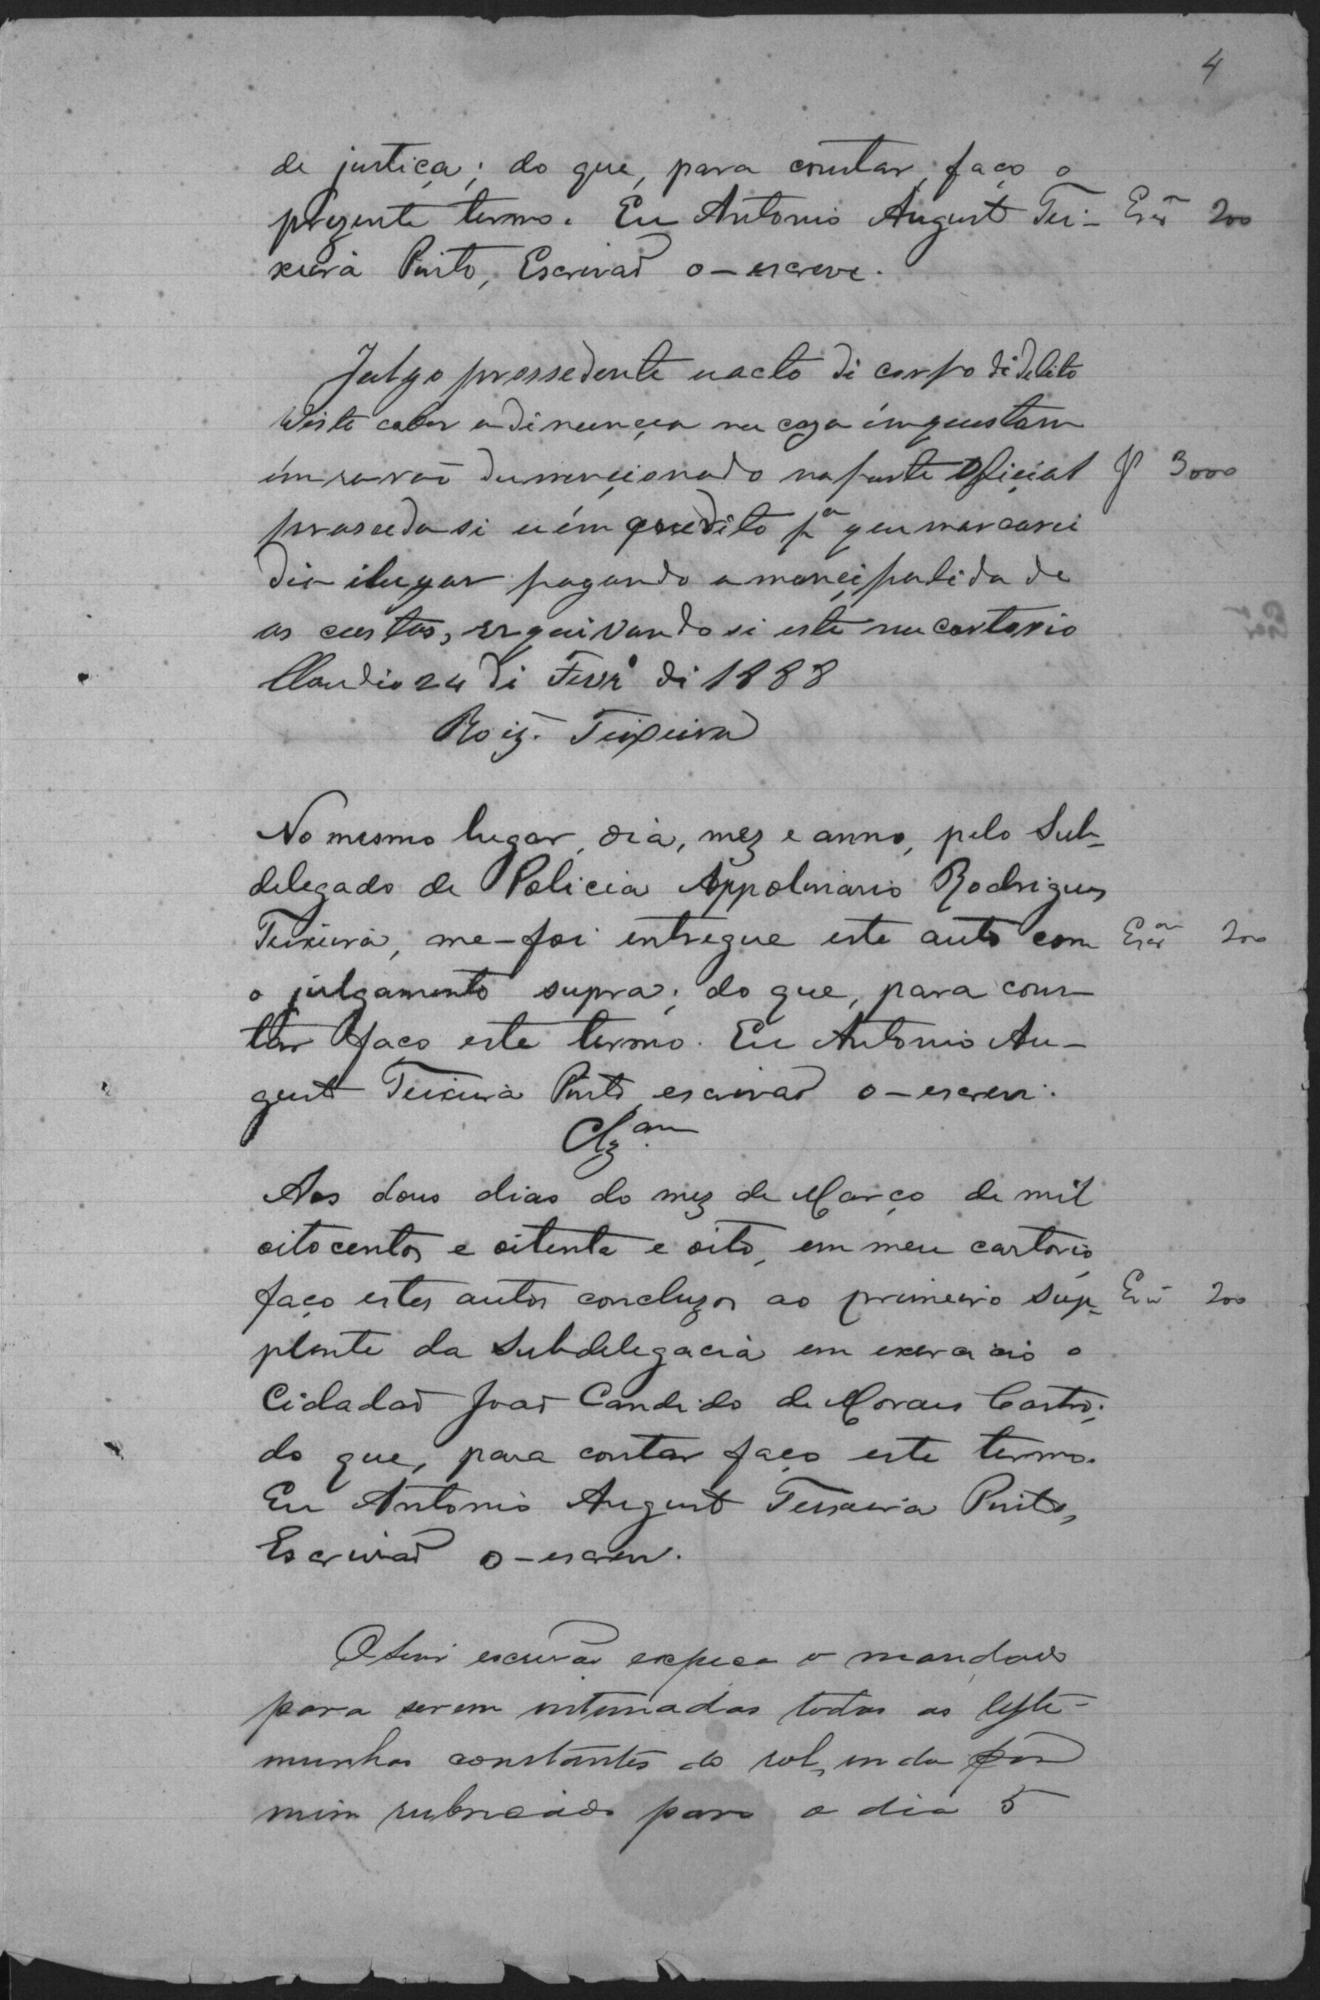 4
de justiça; do que, para constar, faço o
prezente termo. Eu Antonio August Tei- Escrm 200
xeira Pinto, Escrivaõ o-escrevi.
Julgo prossedente uacto di corpo di delito
Visto caber adinuncia nu cazo
ém rasaõ dumencionado na parte Oficial J 3000
proseda si uém pª queu marcarei
dia ilugar pagando amoncipalidade
as custas, erquivando si este nu cartorio
Claudio 24 di Fevrº di 1888
Roiz. Teixeira
No mesmo lugar, dia, mez e anno, pelo Sub-
delegado de Policia Appolinario Rodrigues
Teixeira, me-foi entregue este auto com Escram 200
o julgamento supra; do que, para cons-
tar faço este termo. Eu Antonio Au-
gust Teixeira Pinto escrivaõ o-escrevi.
Clzam
Aos dous dias do mez de Março de mil
oitocentos e oitenta e oito, em meu cartorio,
faço estes autos concluzos ao primeiro sup- 200
plente da Subdelegacia em exercicio o
Cidadaõ Joaõ Candido de Moraes Castro;
do que, para contar faço este termo.
Eu Antonio August Teixeira Pinto,
Escrivaõ o-escrevi.
O Senr escrivaõ expeça o mandado
para serem intimadas todas as teste-
munhas constantes do rol, por
mim rubricado para o dia 5